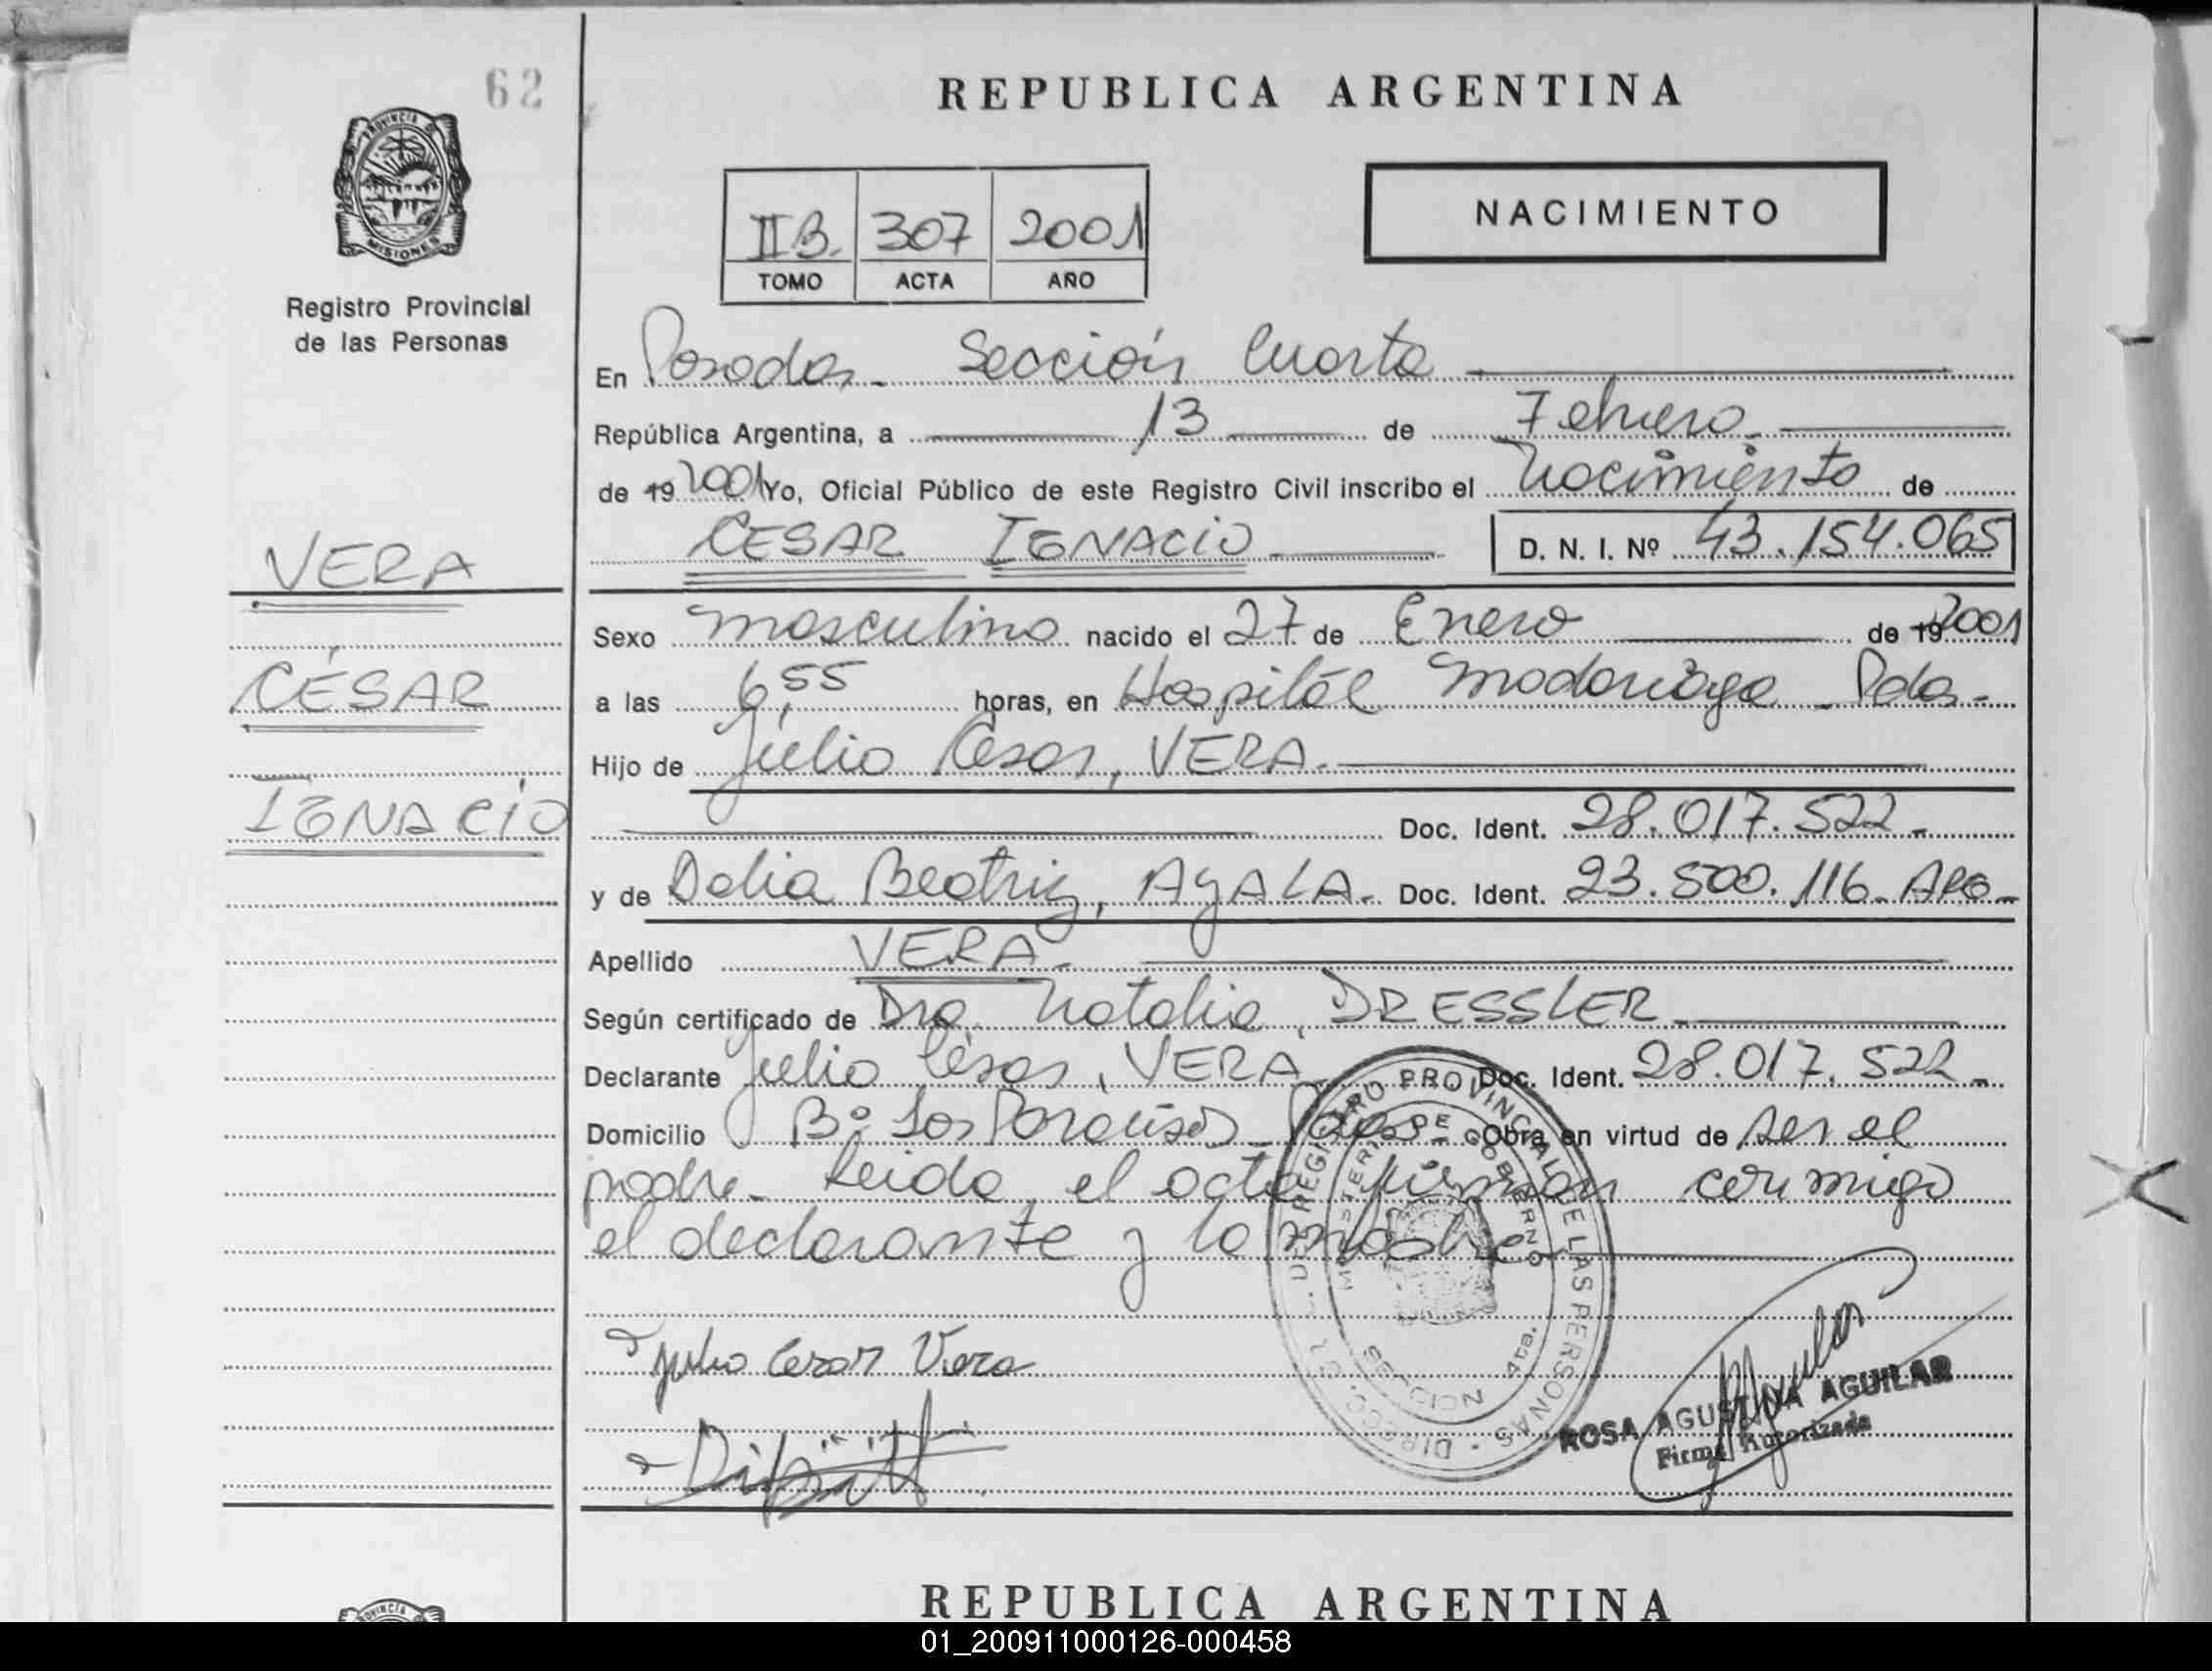 62
REPUBLICA ARGENTINA
PROVINCIA DE
MISIONES
Registro Provincial
de las Personas
II B. 307 2001
TOMO ACTA AÑO
NACIMIENTO
En Posadas - Sección Cuarta
República Argentina, a 13 de Febrero
de 19 2001 Yo, Oficial Público de este Registro Civil inscribo el Nacimiento de
CESAR IGNACIO D. N. I. Nº 43.154.065
VERA
CÉSAR
IGNACIO
Sexo masculino nacido el 27 de Enero de 19 2001
a las 6,55 horas, en Hospital Madariaga - Pdas -
Hijo de Julio Cesar, VERA.
Doc. Ident. 28.017.522 -
y de Delia Beatriz, AYALA - Doc. Ident. 23.500.116 - ARG -
Apellido VERA -
Según certificado de Dra. Natalia, DRESSLER
Declarante Julio César, VERA Doc. Ident. 28.017.522 -
Domicilio Bº Los Paraísos - Pdas - Obra en virtud de ser el
padre - Leida el acta firman conmigo
el declarante y la madre
DIRECC. GRAL. DEL REGISTRO PROVINCIAL DE LAS PERSONAS
MINISTERIO DE GOBIERNO
SECCION 4ta.
Julio Cesar Vera
ROSA AGUSTINA AGUILAR
Firma Autorizada
PROVINCIA
REPUBLICA ARGENTINA
01_200911000126-000458